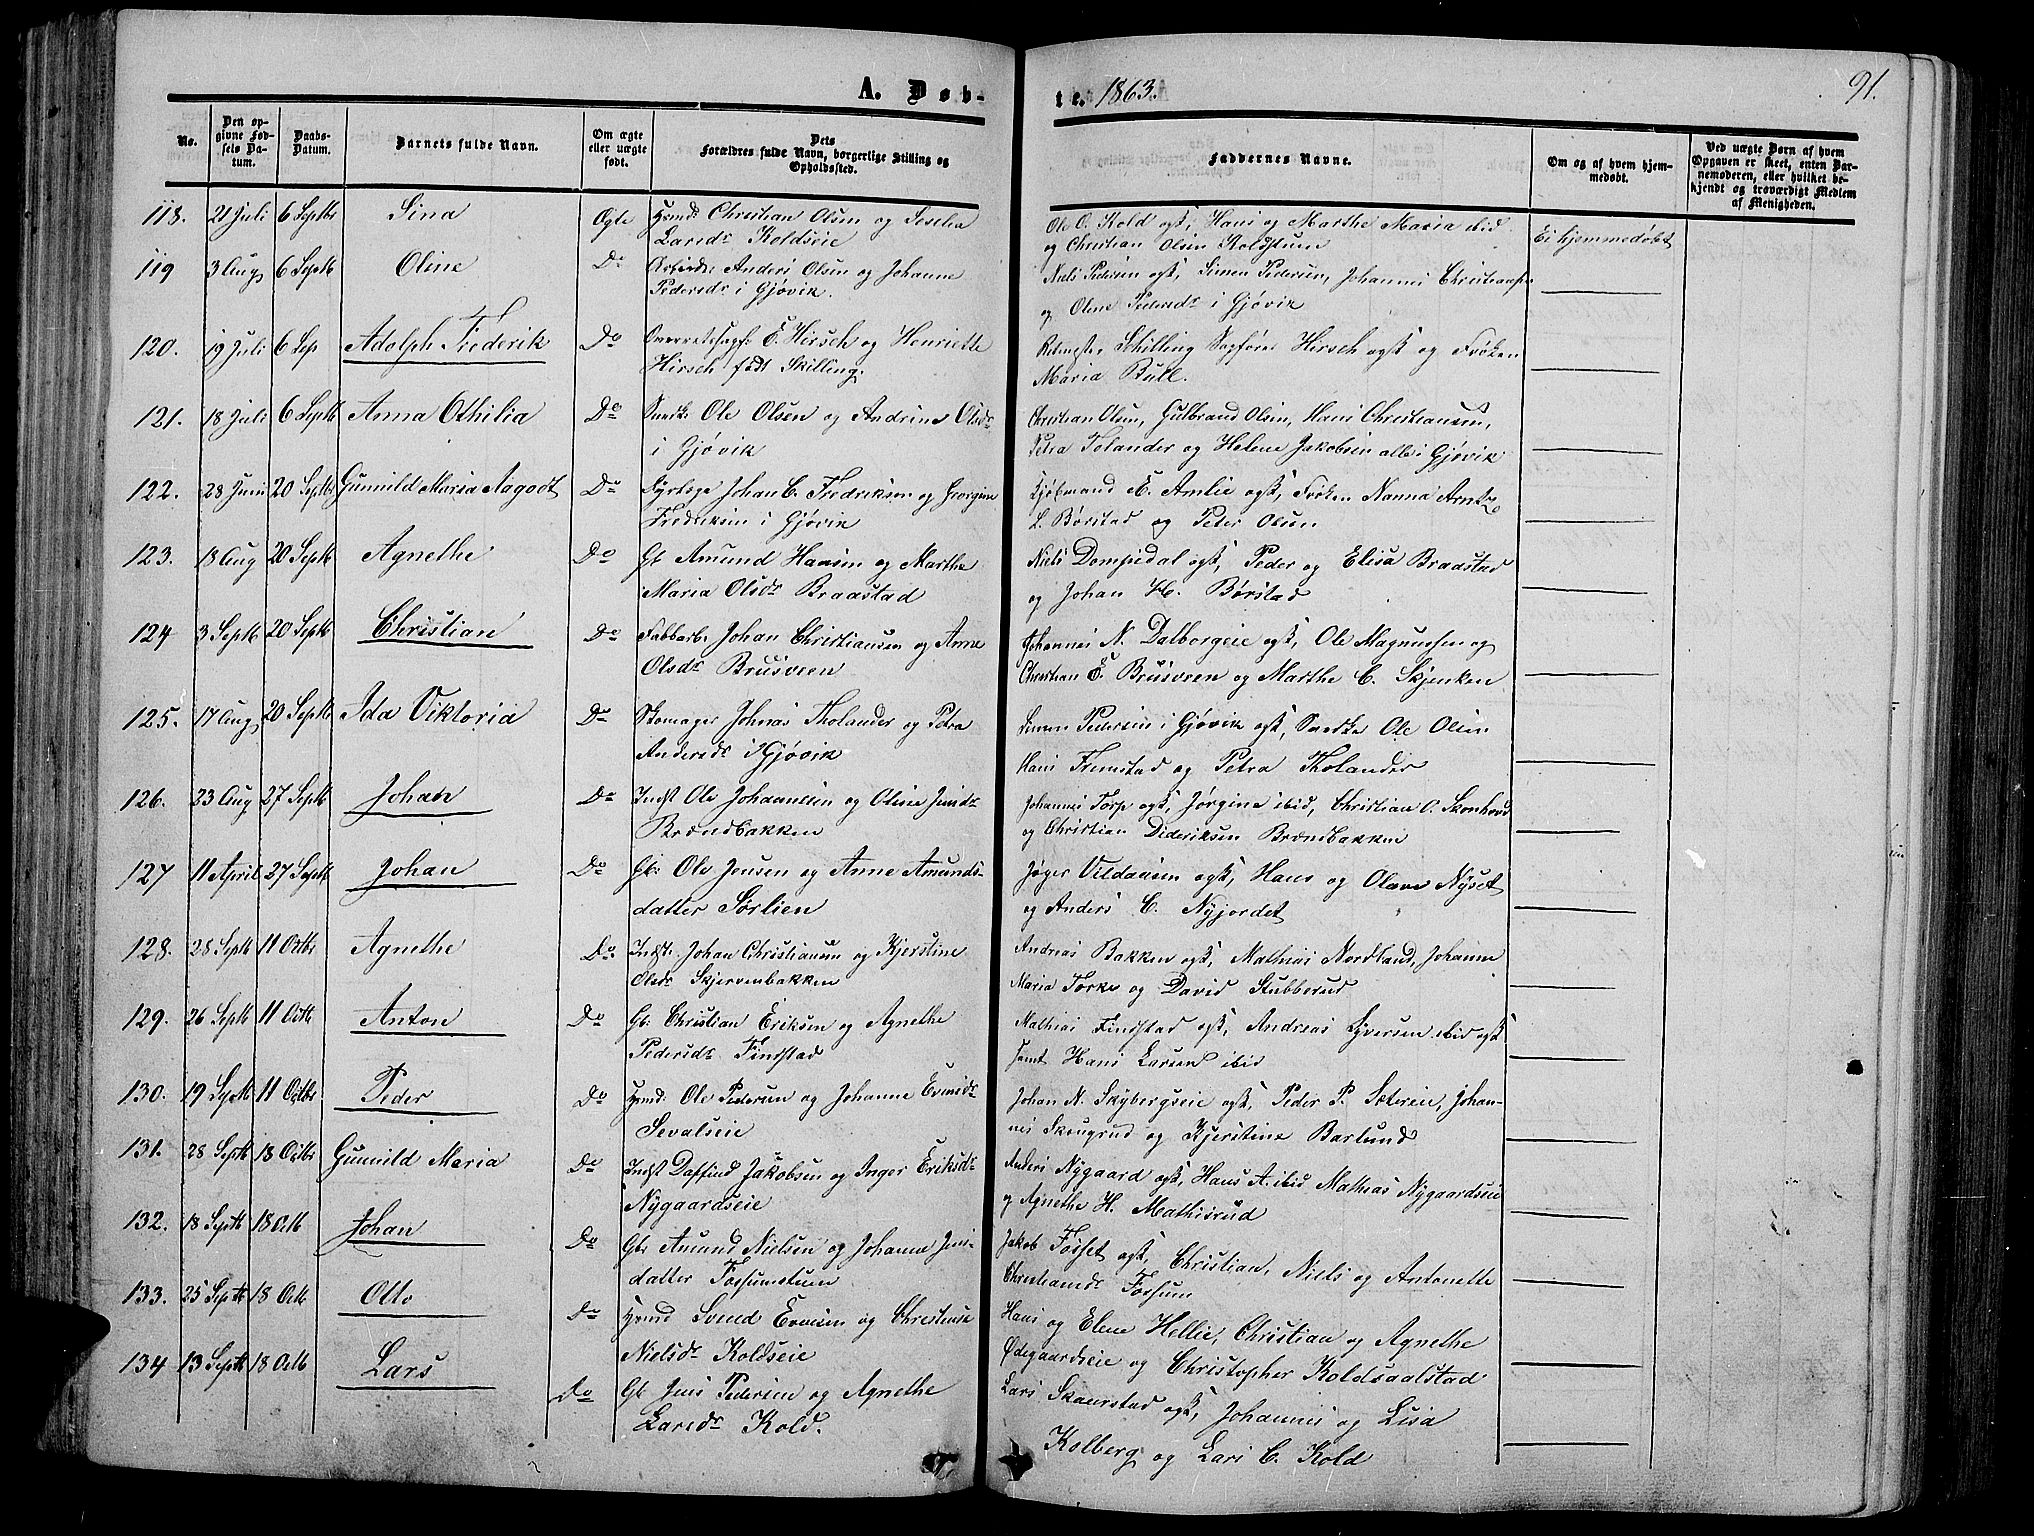 A. Døb-
te. 1863.
91.
No.
Den op-
givne Fød-
sels Da-
tum.
Daabs-
Datum.
Barnets fulde Navn.
Om ægte
eller uægte
født.
Dets
Forældres fulde Navn, borgerlige Stilling og
Opholdssted.
Faddernes Navne.
Om og af hvem hjem-
medøbt.
Ved uægte Børn af hvem
Opgaven er skeet, enten Bar-
nemoderen, eller hvilket be-
kjendt og troværdigt Medlem
af Menigheden.
118. 21 Juli 6 Septbr Sina Ægte Hmd: Christian Olsen og
Larsdr Koldseie
Ole O. Kold ogst, Hans og Marthe Maria ibid
og Christian Olsen Koldstuen
Ei hjemmedøbt
119 3 Aug 6 Septb Oline Do Arbeidsm Anders Olsen og Johanne
Pedersdr i Gjøvik.
Niels Pedersen ogst, Simen Pedersen, Johannes Christiansen
og Oline Pedersdr i Gjøvik
120. 19 Juli 6 Sep Adolph Frederik Do Overretssagf. E. Hirsch og Henriette
Hirsch født Skilling.
Ritmester Schilling Sagfører Hirsch ogst og Frøken
Maria Bull.
121. 18 Juli 6 Septb Anna Othilia Do Snedk. Ole Olsen og Andrine Olsdr
i Gjøvik
Christian Olsen, Gulbrand Olsen, Hans Christiansen,
Petra Tolander og Helene Jakobsen alle i Gjøvik
122. 28 Juni 20 Septb Gunnild Maria Aagodt Do Dyrlæge Johan C. Fredriksen og Georgine
Fredriksen i Gjøvik
Kjøbmand E. Amlie ogst, Frøken Nanna Arntz,
L. Børstad og Peter Olsen
123. 18 Aug 20 Septb Agnethe Do Gb Amund Hansen og Marthe
Maria Olsdr Braastad
Niels Dompidal ogst, Peder og Elisa Braastad
og Johan H. Børstad
124 3 Septb 20 Septb Christian Do Fabbarb. Johan Christiansen og Anne
Olsdr Brusveen
Johannes N. Dalborgeie ogst, Ole Magnussen og
Christian E. Brusveen og Marthe C. Skjenken
125. 17 Aug 20 Septb Ida Viktoria Do Skomager Johnas Tholander og Petra
Andersdr i Gjøvik
Simen Pedersen i Gjøvik ogst, Snedke Ole Olsen
Hans Fremstad og Petra Tholander
126. 23 Aug 27 Septb Johan Do Indst Ole Johannesen og Oline Jensdr
Brændbakken
Johannes Torp ogst, Jørgine ibid, Christian O. Skonhovd
og Christian Dideriksen Brændbakken
127 11 April 27 Septb Johan Do Gb: Ole Jensen og Anne Amunds-
datter Sørlien
Jøger Vildaasen ogst, Hans og Olave Nyset
og Anders C. Nyjordet
128. 28 Septb 11 Octbr Agnethe Do. Indst. Johan Christiansen og Kjerstine
Olsdr Skjervenbakken
Andreas Bakken ogst, Mathias Nordland, Johanne
Maria Torke og David Stubberud
129. 26 Septb 11 Octb Anton Do Gb: Christian Eriksen og Agnethe
Pedersdr Findstad
Mathias Findstad ogst, Andreas Syversen ibid ogst
samt Hans Larsen ibid
130. 19 Septb 11 Octbr Peder Do Hmd: Ole Pedersen og Johanne Evensdr
Sevalseie
Johan N. Skybergseie ogst, Peder P. Sætereie, Johan-
nes Skougrud og Kjerstine Barlund
131. 28 Septb 18 Octbr Gunnild Maria Do Indst Daffind Jakobsen og Inger Eriksdr
Nygaardseie
Anders Nygaard ogst, Hans A. ibid Mathias Nygaardseie
og Agnethe H. Mathisrud
132. 18 Septb 18 Octb Johan Do Gb: Amund Nielsen og Johanne Jens-
datter Forsumstuen
Jakob Fosset ogst, Christian, Niels og Antonette
Christiansdr Forsum
133. 25 Septb 18 Octb Otto Do Hmd Svend Evensen og Christense
Nielsdr Koldseie
Hans og Elene Hellie, Christian og Agnethe
Ødegaardseie og Christopher Koldsaalstad
134 13 Septb 18 Octb Lars Do Gb Jens Pedersen og Agnethe
Larsdr Kold.
Lars Skaurstad ogst, Johannes og Lisa
Kolberg og Lars C. Kold